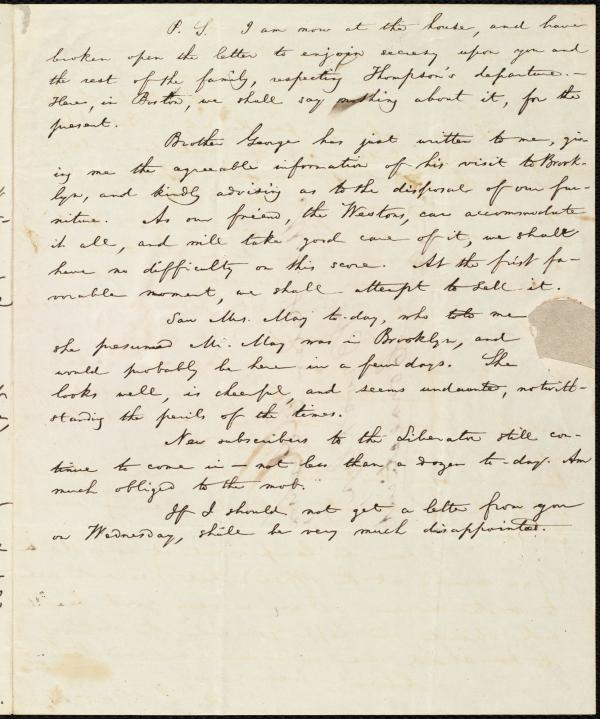 P. S. I am now at the house, and have
broken open the letter to enjoin secresy upon you and
the rest of the family, respecting Thompson's departure.—
Here, in Boston, we shall say nothing about it, for the
present.
Brother George has just written to me, giv-
ing me the agreeable information of his visit to Brook-
lyn, and kindly advising as to the disposal of our fur-
niture. As our friend, the Westons, can accommodate
it all, and will take good care of it, we shall
have no difficulty on this score. At the first fa-
vorable moment, we shall attempt to sell it.
Saw Mrs. May to-day, who told me
she presumed Mr. May was in Brooklyn, and
would probably be here in a few days. She
looks well, is cheerful, and seems undaunted, notwith-
standing the perils of the times.
New subscribers to the Liberator still con-
tinue to come in — not less than a dozen to-day. Am
much obliged to the mob.
If I should not get a letter from you
on Wednesday, shall be very much disappointed.